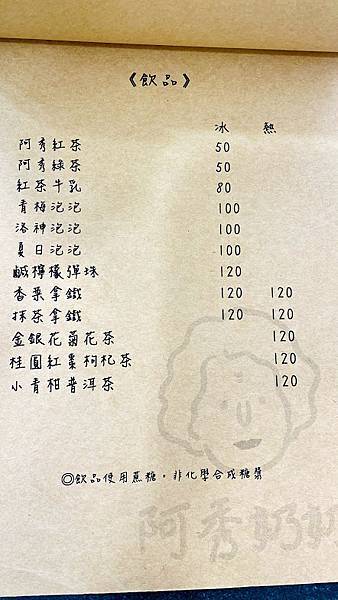 《飲品》
冰 熱
阿秀紅茶 50
阿秀綠茶 50
紅茶牛乳 80
青梅泡泡 100
洛神泡泡 100
夏日泡泡 100
鹹檸檬彈珠 120
香葉拿鐵 120 120
抹茶拿鐵 120 120
金銀花菊花茶 120
桂圓紅棗枸杞茶 120
小青柑普洱茶 120
◎飲品使用蔗糖，非化學合成糖漿
阿秀奶奶